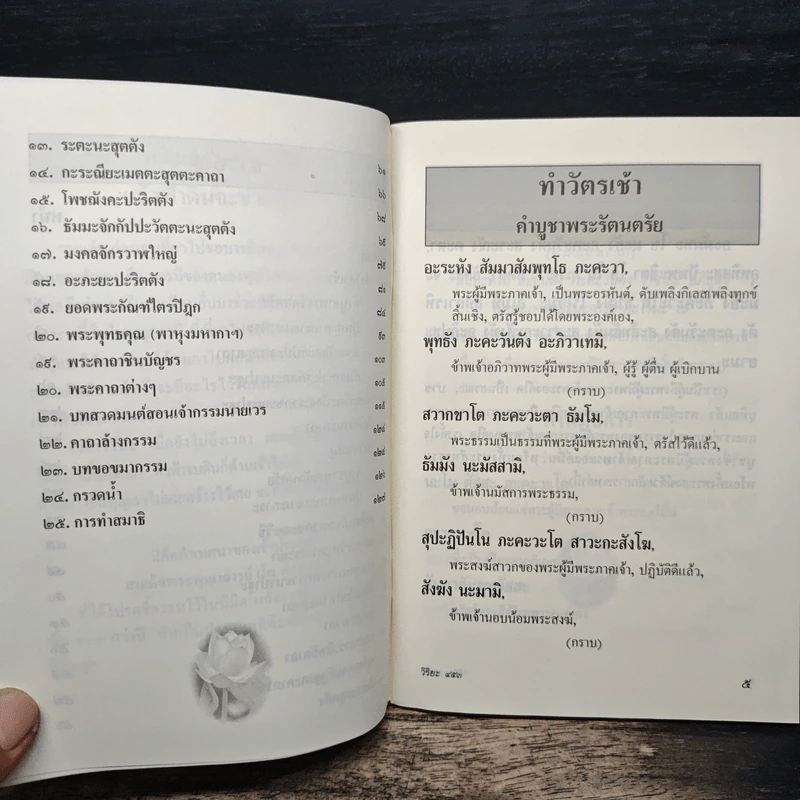 ๑๓. ระตะนะสุตตัง
๑๔. กะระณียะเมตตะสุตตะคาถา ๖๑
๑๕. โพชฌังคะปะริตตัง ๖๖
๑๖. ธัมมะจักกัปปะวัตตะนะสุตตัง ๖๘
๑๗. มงคลจักรวาฬใหญ่ ๖๙
๑๘. อะภะยะปะริตตัง ๘๑
๑๙. ยอดพระกัณฑ์ไตรปิฎก ๘๔
๒๐. พระพุทธคุณ (พาหุงมหากาฯ) ๙๓
๑๙. พระคาถาชินบัญชร ๑๐๓
๒๐. พระคาถาต่างๆ
๒๑. บทสวดมนต์สอนเจ้ากรรมนายเวร
๒๒. คาถาล้างกรรม
๒๓. บทขอขมากรรม
๒๔. กรวดน้ำ
๒๕. การทำสมาธิ
ทำวัตรเช้า
คำบูชาพระรัตนตรัย
อะระหัง สัมมาสัมพุทโธ ภะคะวา,
พระผู้มีพระภาคเจ้า, เป็นพระอรหันต์, ดับเพลิงกิเลสเพลิงทุกข์
สิ้นเชิง, ตรัสรู้ชอบได้โดยพระองค์เอง,
พุทธัง ภะคะวันตัง อะภิวาเทมิ,
ข้าพเจ้าอภิวาทพระผู้มีพระภาคเจ้า, ผู้รู้ ผู้ตื่น ผู้เบิกบาน
(กราบ)
สวากขาโต ภะคะวะตา ธัมโม,
พระธรรมเป็นธรรมที่พระผู้มีพระภาคเจ้า, ตรัสไว้ดีแล้ว,
ธัมมัง นะมัสสามิ,
ข้าพเจ้านมัสการพระธรรม,
(กราบ)
สุปะฏิปันโน ภะคะวะโต สาวะกะสังโฆ,
พระสงฆ์สาวกของพระผู้มีพระภาคเจ้า, ปฏิบัติดีแล้ว,
สังฆัง นะมามิ,
ข้าพเจ้านอบน้อมพระสงฆ์,
(กราบ)
วิริยะ ๔๕๓
๕